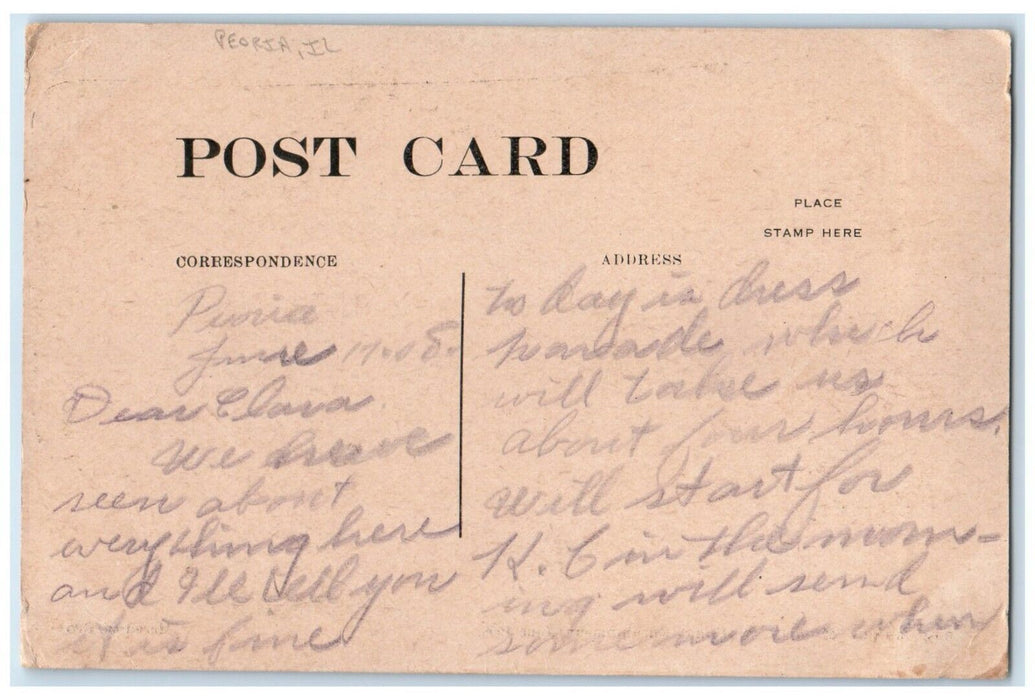 PEORIA, IL
POST CARD
PLACE
STAMP HERE
CORRESPONDENCE
ADDRESS
Peoria
June 17.08.
Dear Clara.
We have
seen about
everything here
and I'll tell you
it is fine
to day is dress
parade which
will take us
about four hours.
will start for
K. C in the morn-
ing will send
some more when